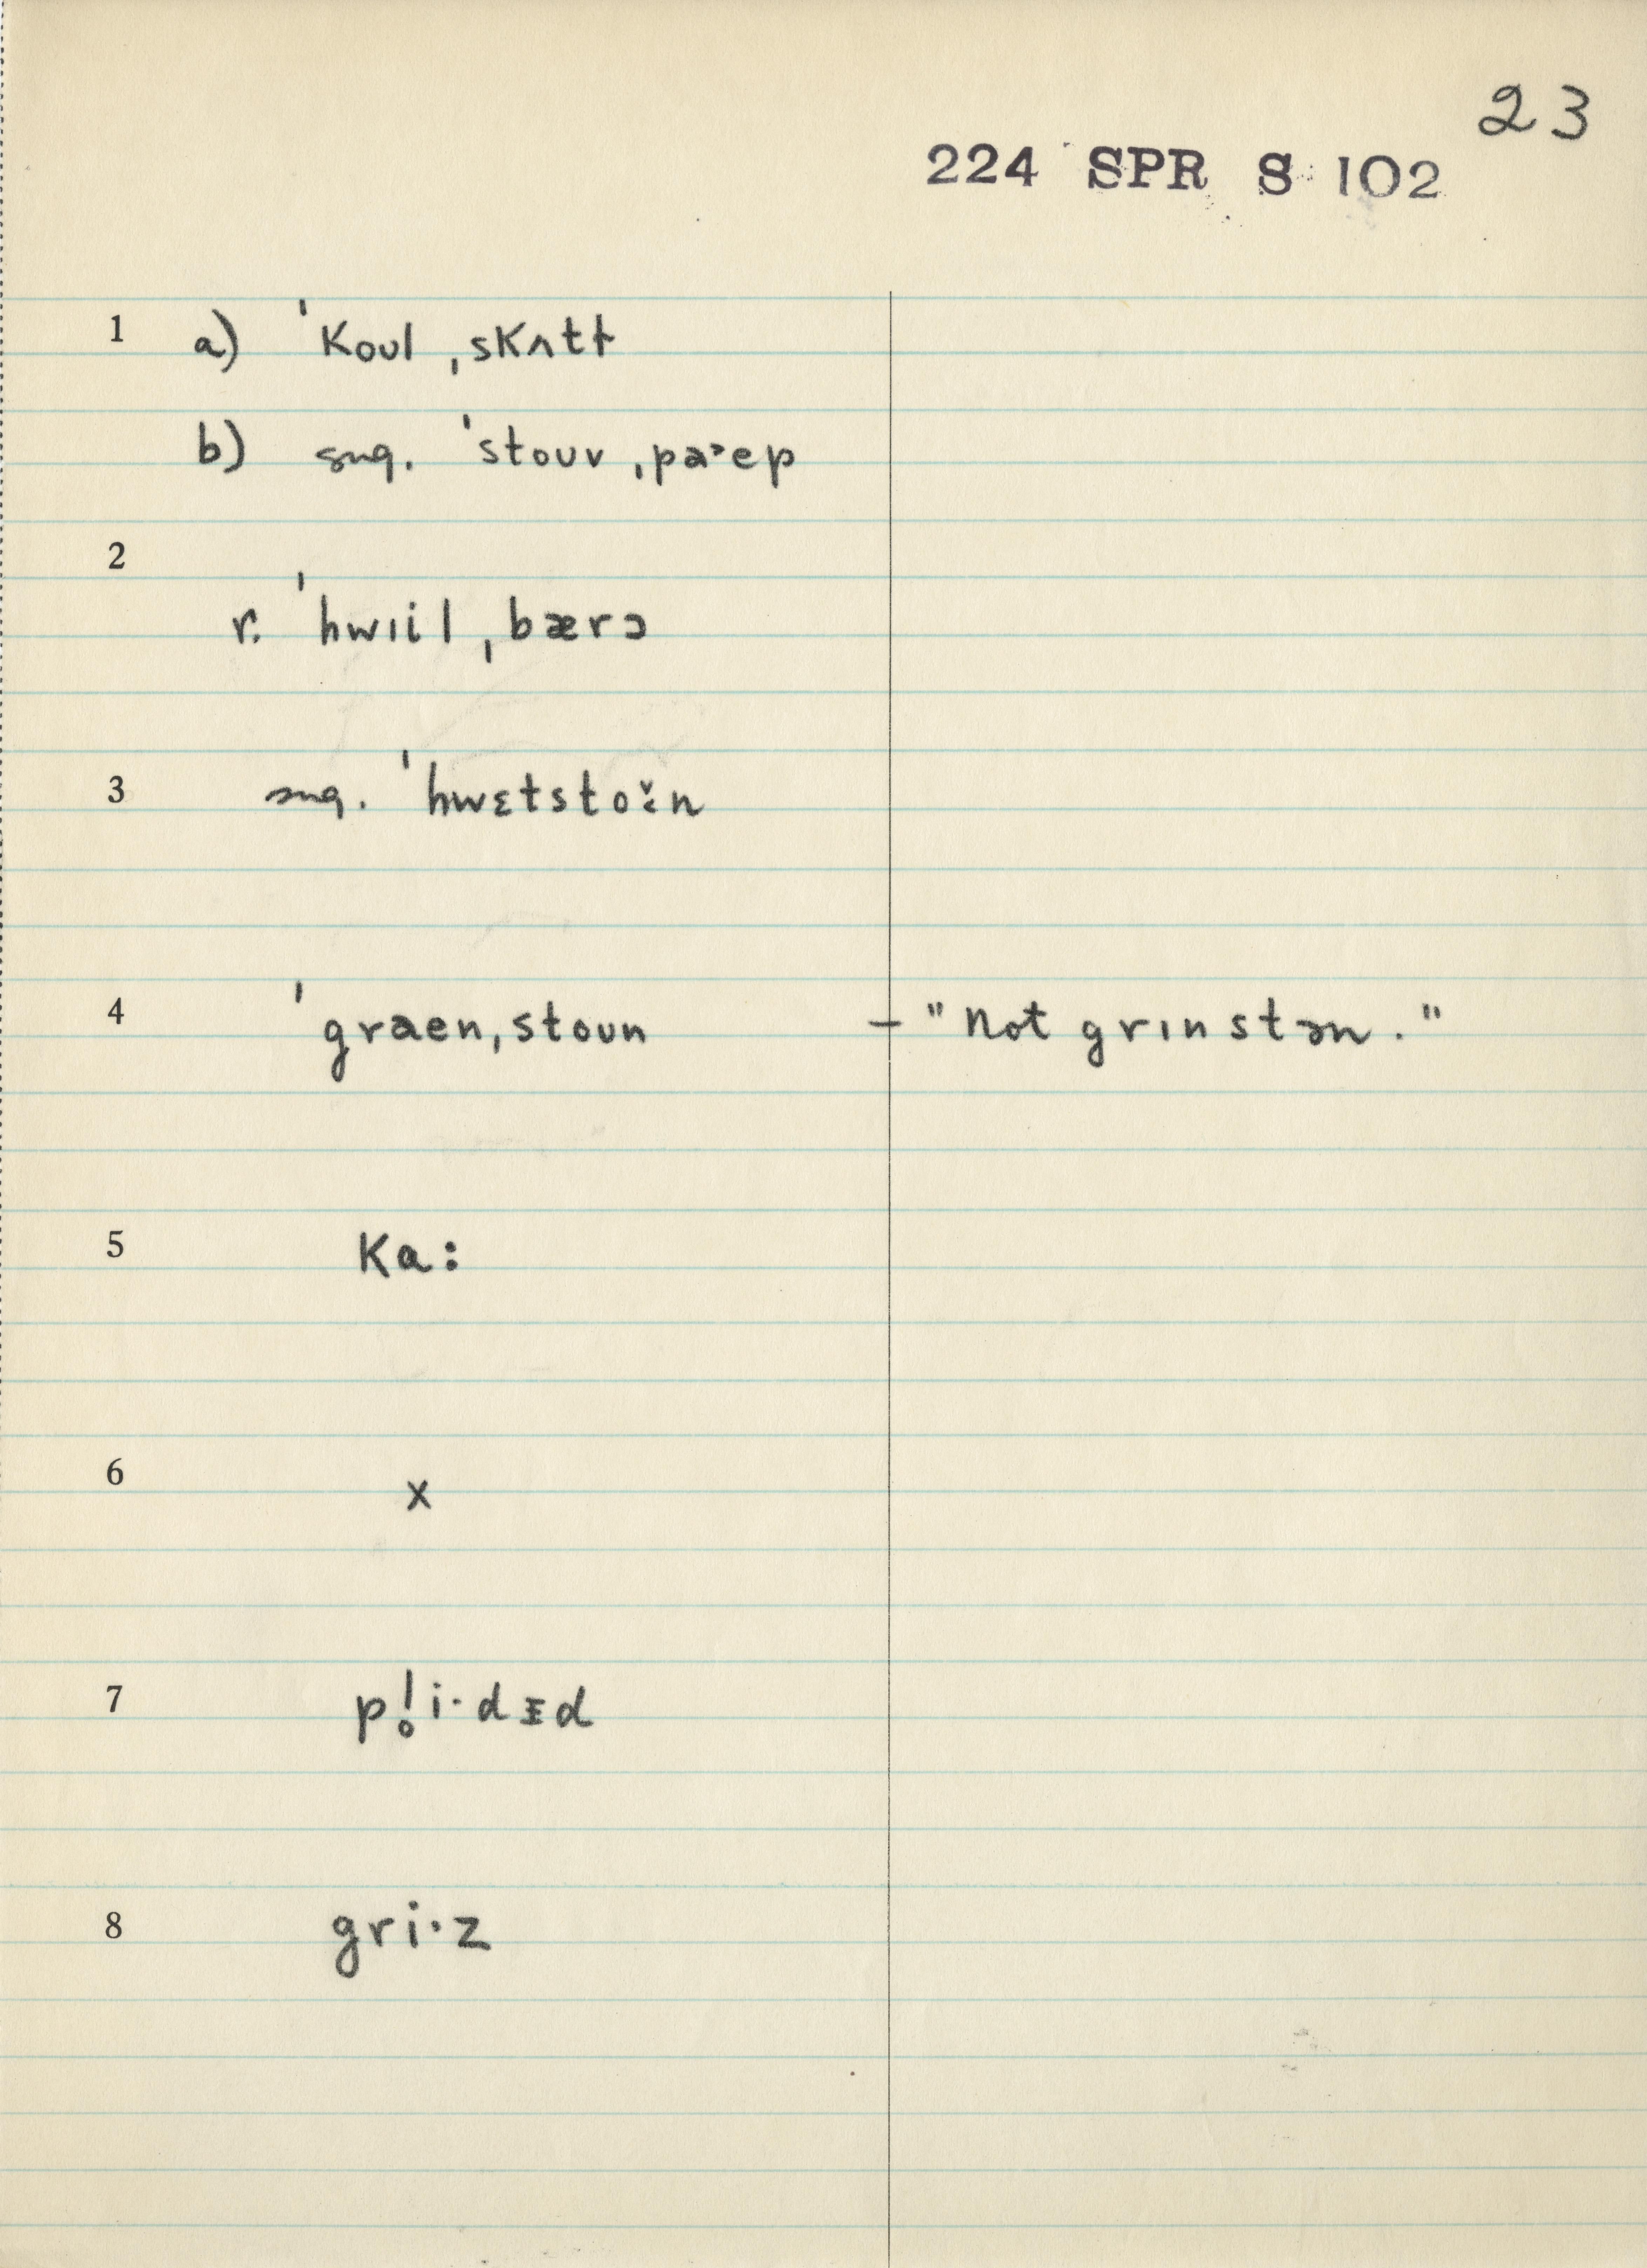 23
224 SPR S 102
1 a) ˈkoul ˌskʌtɫ
b) sug. ˈstouv ˌpaˑep
2
r. ˈhwɪil ˌbærɔ
3 sug. ˈhwɛtstoɛ̆n
4 ˈgraenˌstoun – "not grɪnstən."
5 ka:
6 x
7 pl̥i·dɪd
8 gri·z